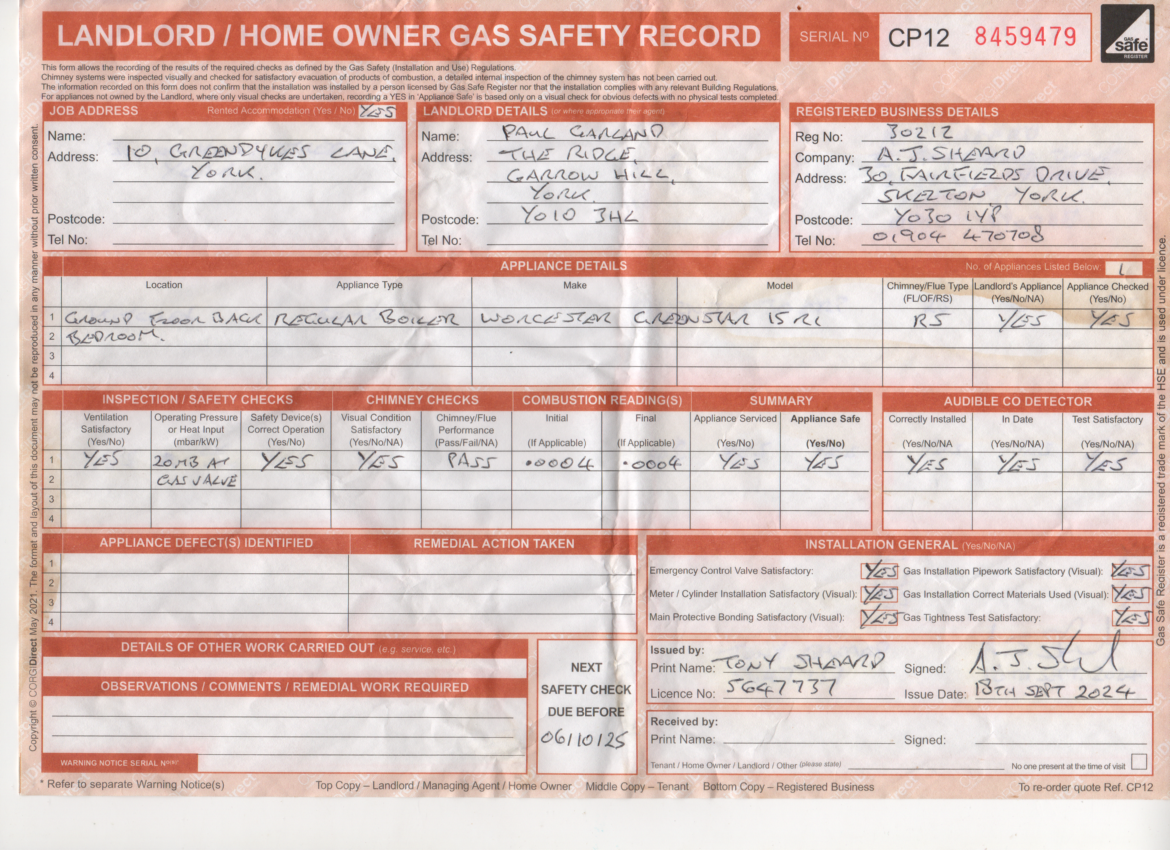 LANDLORD / HOME OWNER GAS SAFETY RECORD
SERIAL Nº CP12 8459479
GAS safe REGISTER
This form allows the recording of the results of the required checks as defined by the Gas Safety (Installation and Use) Regulations.
Chimney systems were inspected visually and checked for satisfactory evacuation of products of combustion, a detailed internal inspection of the chimney system has not been carried out.
The information recorded on this form does not confirm that the installation was installed by a person licensed by Gas Safe Register nor that the installation complies with any relevant Building Regulations.
For appliances not owned by the Landlord, where only visual checks are undertaken, recording a YES in 'Appliance Safe' is based only on a visual check for obvious defects with no physical tests completed
JOB ADDRESS Rented Accommodation (Yes / No) YES
Name:
Address: 10, GREENDYKES LANE,
YORK.
Postcode:
Tel No:
LANDLORD DETAILS (or where appropriate their agent)
Name: PAUL GARLAND
Address: THE RIDGE,
GARROW HILL,
YORK.
Postcode: YO10 3HL
Tel No:
REGISTERED BUSINESS DETAILS
Reg No: 30212
Company: A.J. SHEARD
Address: 30, FAIRFIELDS DRIVE,
SKELTON, YORK.
Postcode: YO30 1YP
Tel No: 01904 470708
APPLIANCE DETAILS No. of Appliances Listed Below 1
Location Appliance Type Make Model Chimney/Flue Type (FL/OF/RS) Landlord's Appliance (Yes/No/NA) Appliance Checked (Yes/No)
1 GROUND FLOOR BACK REGULAR BOILER WORCESTER GREENSTAR 15 RI RS YES YES
2 BEDROOM.
3
4
INSPECTION / SAFETY CHECKS CHIMNEY CHECKS COMBUSTION READING(S) SUMMARY AUDIBLE CO DETECTOR
Ventilation Satisfactory (Yes/No) Operating Pressure or Heat Input (mbar/kW) Safety Device(s) Correct Operation (Yes/No) Visual Condition Satisfactory (Yes/No/NA) Chimney/Flue Performance (Pass/Fail/NA) Initial (If Applicable) Final (If Applicable) Appliance Serviced (Yes/No) Appliance Safe (Yes/No) Correctly Installed (Yes/No/NA In Date (Yes/No/NA) Test Satisfactory (Yes/No/NA)
1 YES 20MB AT YES YES PASS .0004 .0004 YES YES YES YES YES
2 GAS VALVE
3
4
APPLIANCE DEFECT(S) IDENTIFIED REMEDIAL ACTION TAKEN
1
2
3
4
INSTALLATION GENERAL (Yes/No/NA)
Emergency Control Valve Satisfactory: YES Gas Installation Pipework Satisfactory (Visual): YES
Meter / Cylinder Installation Satisfactory (Visual): YES Gas Installation Correct Materials Used (Visual): YES
Main Protective Bonding Satisfactory (Visual): YES Gas Tightness Test Satisfactory: YES
DETAILS OF OTHER WORK CARRIED OUT (e.g. service, etc.)
OBSERVATIONS / COMMENTS / REMEDIAL WORK REQUIRED
WARNING NOTICE SERIAL Nº(s)*
NEXT
SAFETY CHECK
DUE BEFORE
06/10/25
Issued by:
Print Name: TONY SHEARD Signed: A.J.
Licence No: 5647737 Issue Date: 18TH SEPT 2024
Received by:
Print Name: Signed:
Tenant / Home Owner / Landlord / Other (please state) No one present at the time of visit
* Refer to separate Warning Notice(s) Top Copy – Landlord / Managing Agent / Home Owner Middle Copy – Tenant Bottom Copy – Registered Business To re-order quote Ref. CP12
Copyright © CORGIDirect May 2021. The format and layout of this document may not be reproduced in any manner without prior written consent.
Gas Safe Register is a registered trade mark of the HSE and is used under licence.